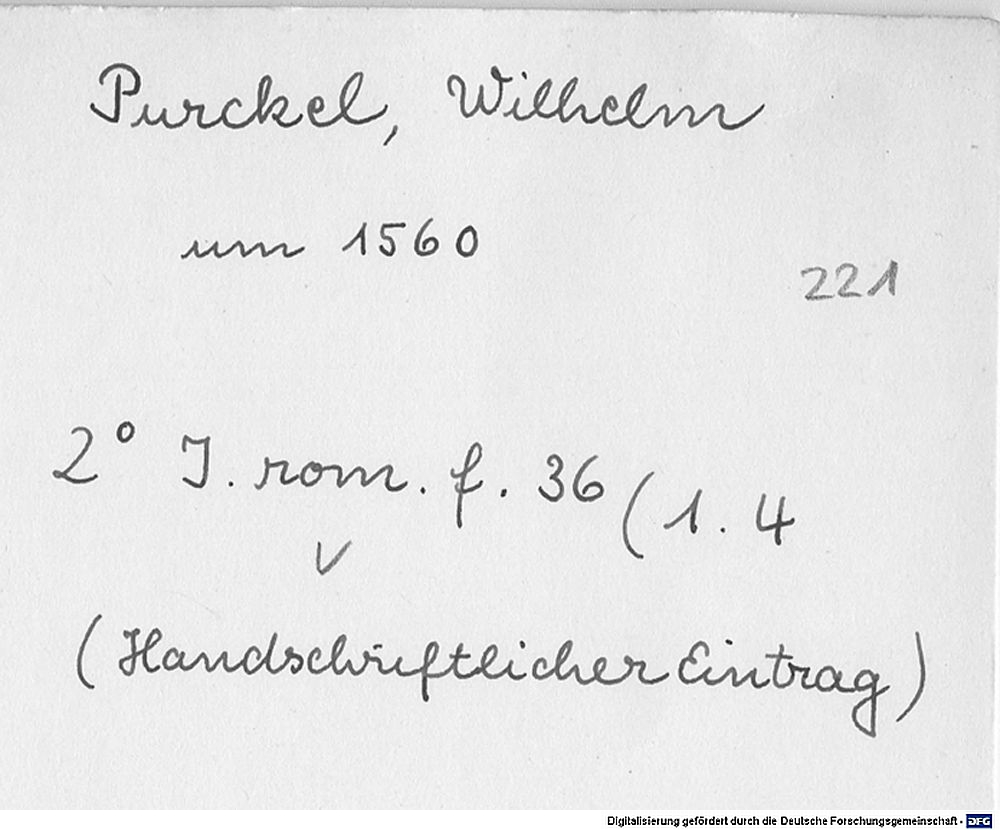 Purckel, Wilhelm
um 1560
221
2° J. rom. f. 36 (1. 4
(Handschriftlicher Eintrag)
Digitalisierung gefördert durch die Deutsche Forschungsgemeinschaft - DFG